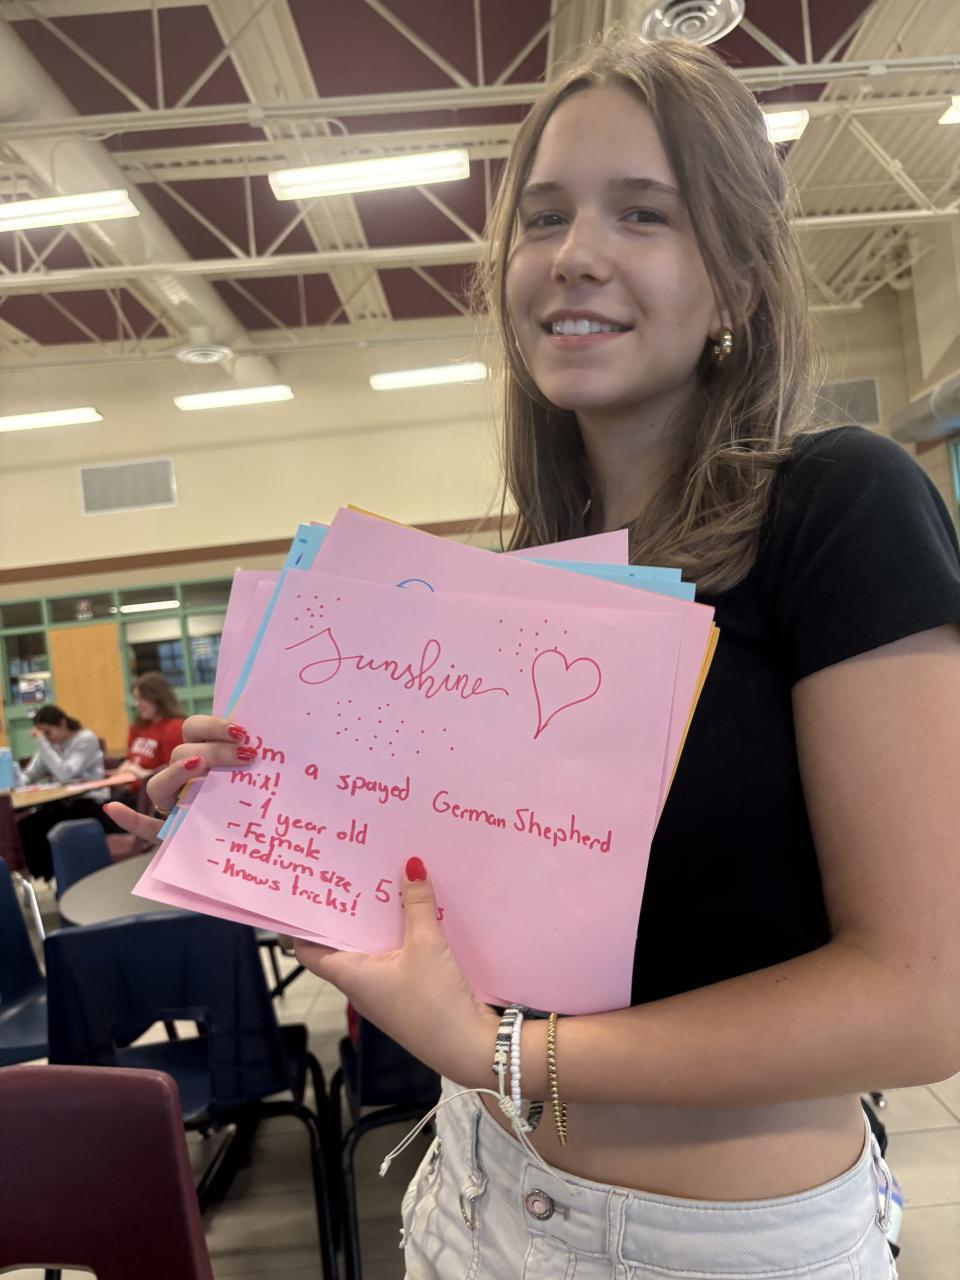 Sunshine
I'm a spayed German Shepherd
mix!
- 1 year old
- Female
- medium size, 5
- Knows tricks!